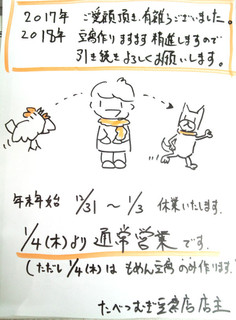 2017年 ご愛顧頂き、有難うございました。
2018年 豆腐作りますます精進しますので
引き続きよろしくお願いします。
年末年始 12/31 〜 1/3 休業いたします。
1/4(木)より通常営業です。
(ただし 1/4(木)は もめん豆腐のみ作ります。)
たべつむぎ豆腐店 店主